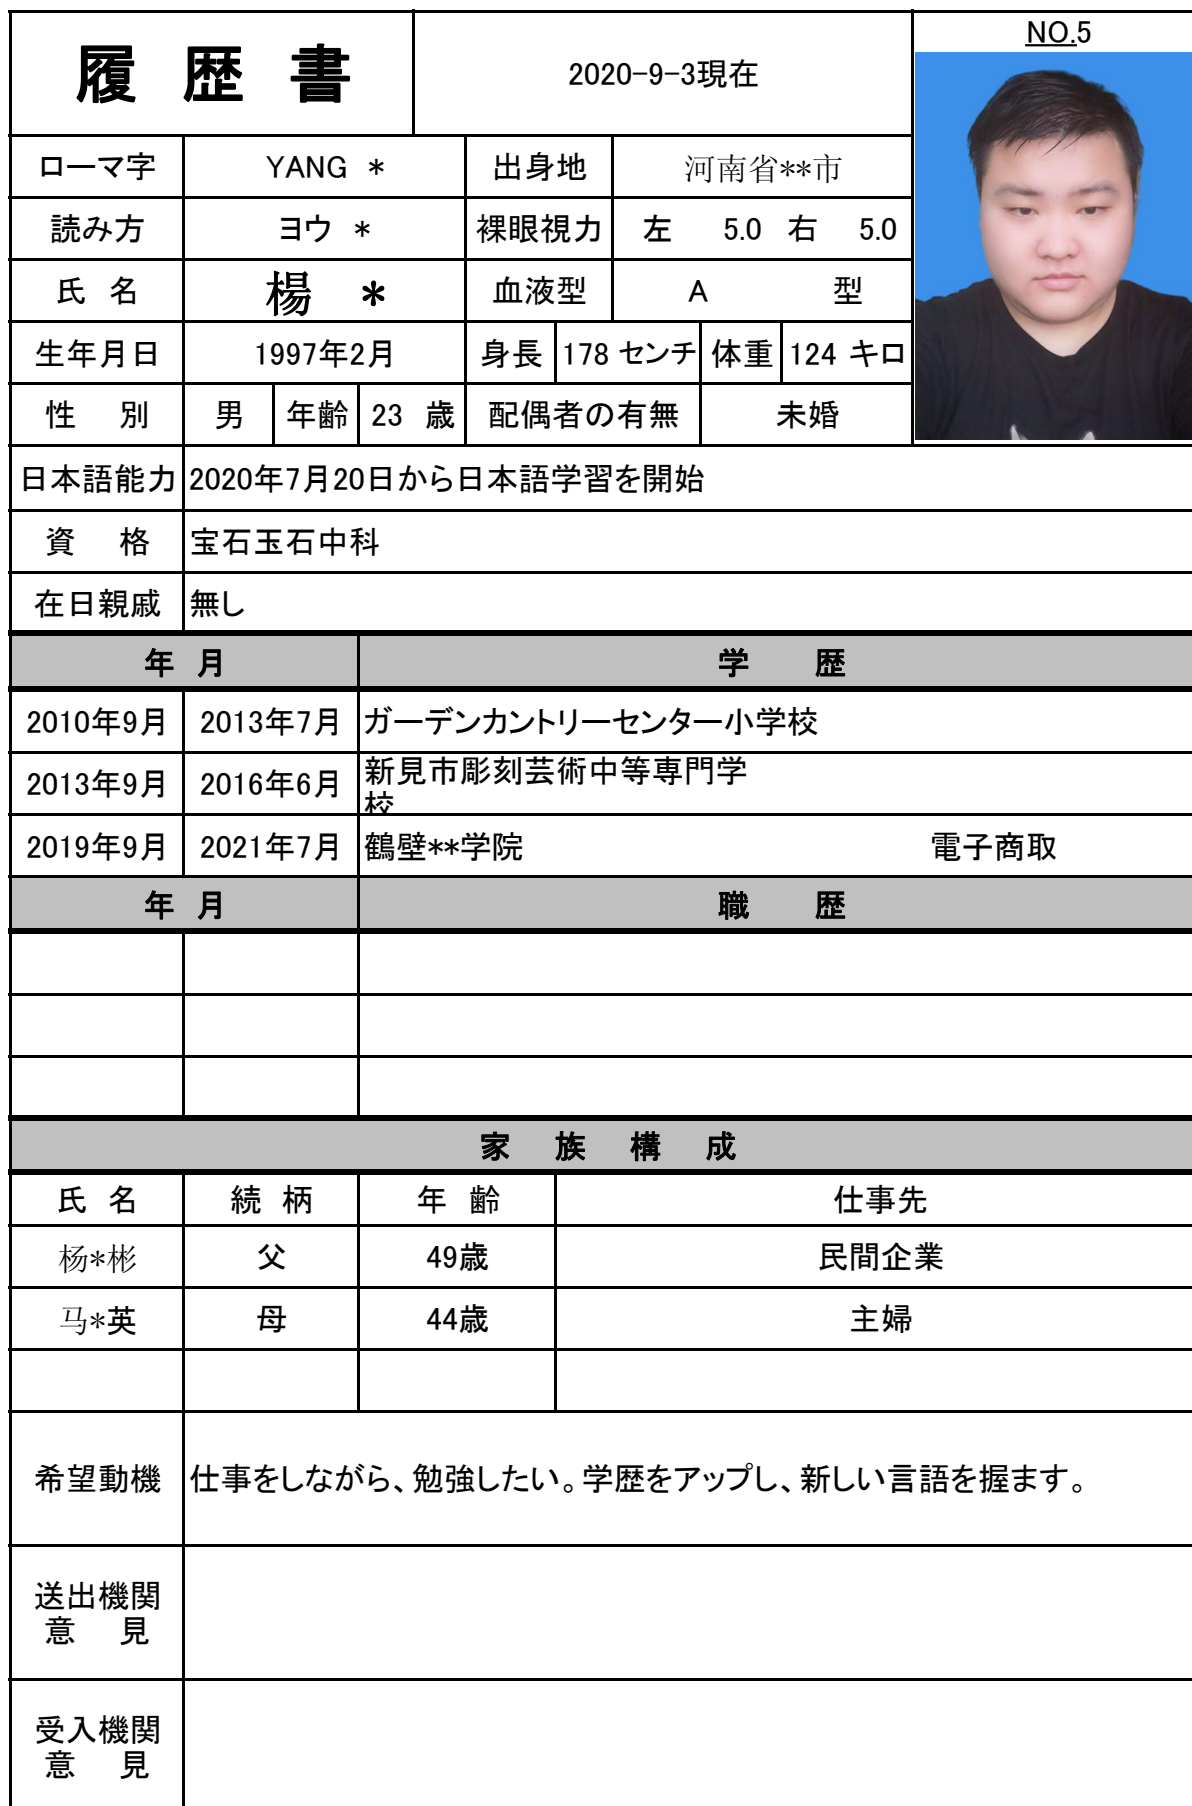 履 歴 書
2020-9-3現在
NO.5
ローマ字 YANG * 出身地 河南省**市
読み方 ヨウ * 裸眼視力 左 5.0 右 5.0
氏 名 楊 * 血液型 A 型
生年月日 1997年2月 身長 178 センチ 体重 124 キロ
性 別 男 年齢 23 歳 配偶者の有無 未婚
日本語能力 2020年7月20日から日本語学習を開始
資 格 宝石玉石中科
在日親戚 無し
年 月 学 歴
2010年9月 2013年7月 ガーデンカントリーセンター小学校
2013年9月 2016年6月 新見市彫刻芸術中等専門学
校
2019年9月 2021年7月 鶴壁**学院 電子商取
年 月 職 歴
家 族 構 成
氏 名 続 柄 年 齢 仕事先
杨*彬 父 49歳 民間企業
马*英 母 44歳 主婦
希望動機 仕事をしながら、勉強したい。学歴をアップし、新しい言語を握ます。
送出機関
意 見
受入機関
意 見